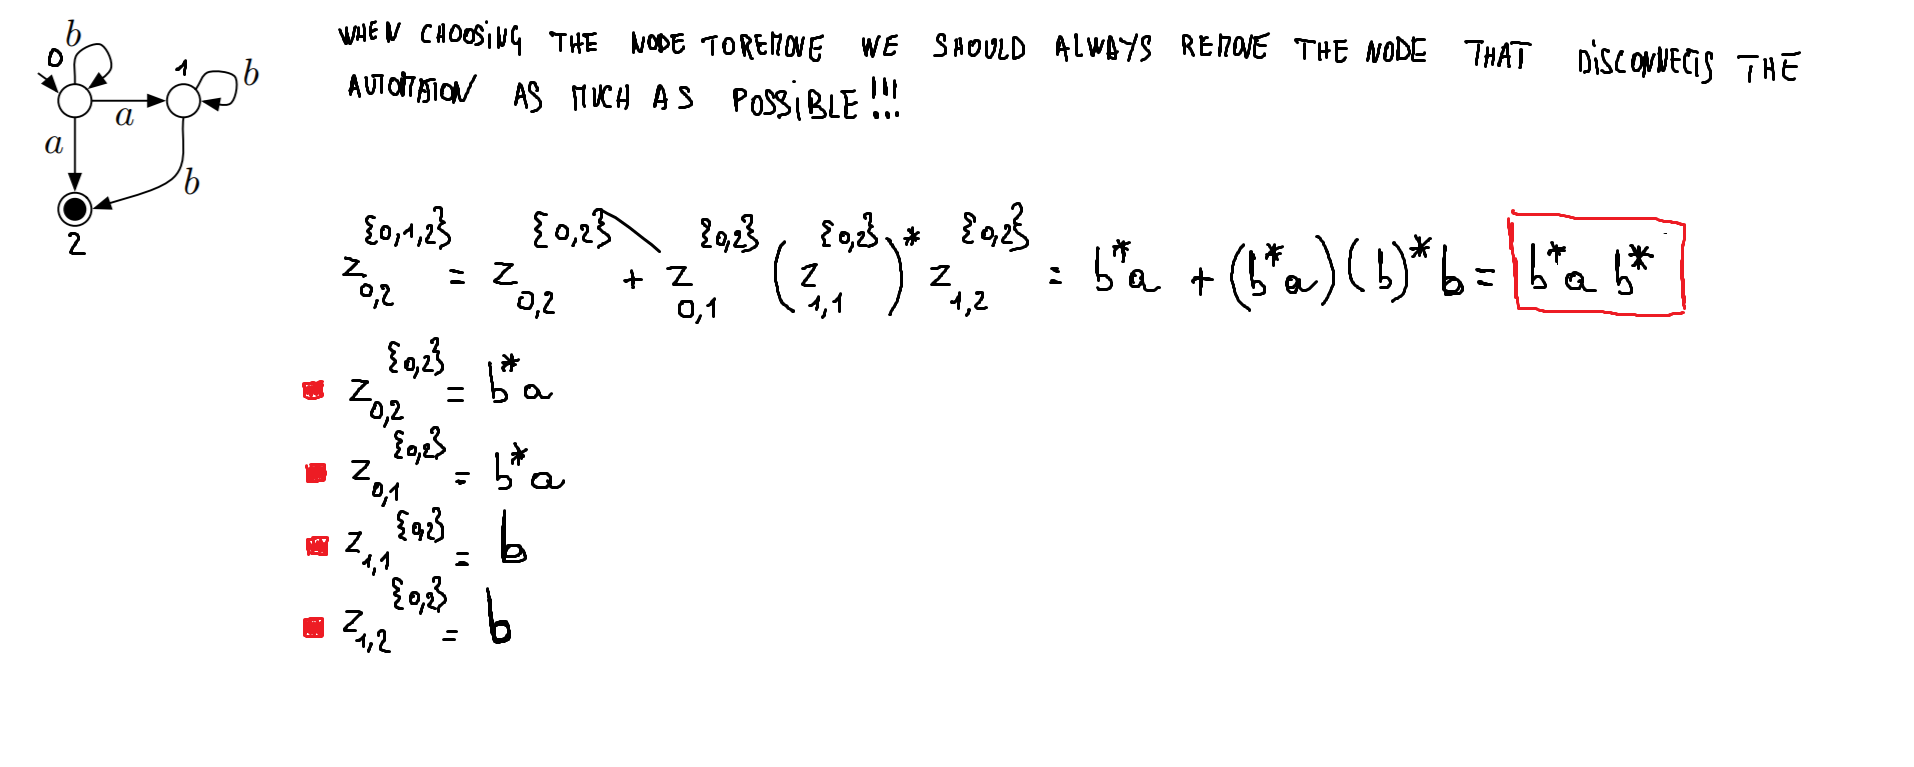 WHEN CHOOSING THE NODE TO REMOVE WE SHOULD ALWAYS REMOVE THE NODE THAT DISCONNECTS THE
AUTOMATON AS MUCH AS POSSIBLE!!!
b
0
1
b
a
a
b
2
z_{0,2}^{{0,1,2}} = z_{0,2}^{{0,2}} + z_{0,1}^{{0,2}} (z_{1,1}^{{0,2}})^* z_{1,2}^{{0,2}} = b^*a + (b^*a)(b)^*b = b^*a b^*
z_{0,2}^{{0,2}} = b^*a
z_{0,1}^{{0,2}} = b^*a
z_{1,1}^{{0,2}} = b
z_{1,2}^{{0,2}} = b